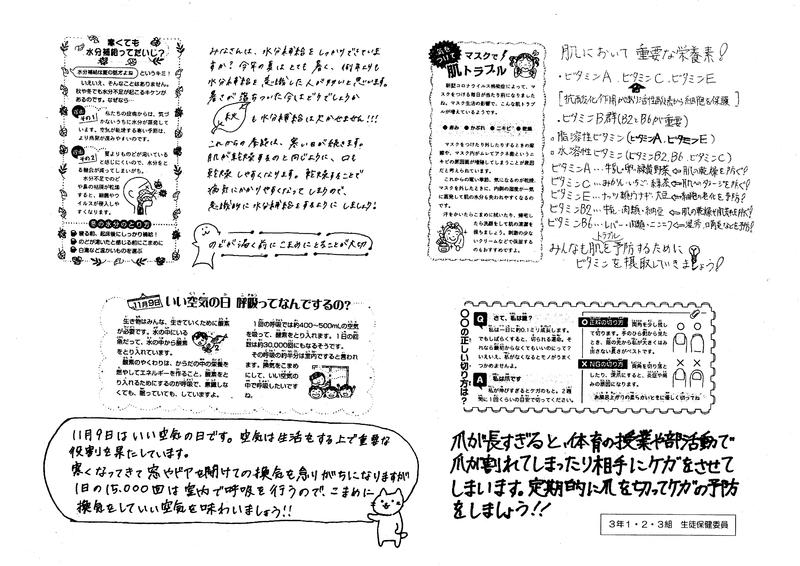 寒くても
水分補給ってだいじ?
水分補給は夏の話だよね というキミ!
いえいえ、そんなことはありません。
秋や冬でも水分不足が起こるキケンが
あるのです。なぜなら…
理由 その1
私たちの皮膚からは、気づ
かないうちに水分が蒸発して
います。空気が乾燥する寒い季節は、
より蒸発が進みやすいのです。
理由 その2
夏よりものどが渇いている
と感じにくいので、水分をと
る機会が減ってしまいがち。
水分不足でのど
や鼻の粘膜が乾燥
すると、細菌やウ
イルスが侵入しや
すくなります。
冬の水分のとり方
寝る前、起床後にしっかり補給!
のどが渇いたと感じる前にこまめに
白湯など温かいものを選ぶ
みなさんは、水分補給をしっかりできています
か?今年の夏はとても暑く、例年よりも
水分補給を意識した人が多いと思います。
暑さが落ちついた今はどうでしょうか
秋 も水分補給は欠かせません!!!
これからの季節は、寒い日が続きます。
肌が乾燥するのと同じように、口も
乾燥しやすくなります。乾燥することで
病気にかかりやすくなってしまうので、
意識的に水分補給をするようにしましょう!
のどが渇く前にこまめにとることが大切♪
気をつけて
マスクで!
肌トラブル
新型コロナウイルス感染症によって、マ
スクをつける毎日が当たり前になりました
ね。マスク生活の影響で、こんな肌トラブル
が増えているようです。
●赤み ●かぶれ ●ニキビ ●乾燥
マスクをつけたり外したりするときの摩
擦や、マスク内がムレてアクネ菌というニ
キビの原因菌が増殖してしまうことが原因
だと考えられています。
これからの寒い季節、気になるのが乾燥。
マスクを外したときに、内側の湿度が一気
に蒸発して肌の水分も失われやすくなります。
汗をかいたらこまめに拭いたり、帰宅し
たら洗顔をして肌の清潔を
保ちましょう。刺激の少な
いクリームなどで保湿する
のもおすすめです。
肌において重要な栄養素!
・ビタミンA、ビタミンC、ビタミンE
[抗酸化作用で活性酸素から細胞を保護]
・ビタミンB群(B2とB6が重要)
◎脂溶性ビタミン(ビタミンA、ビタミンE)
◎水溶性ビタミン(ビタミンB2、B6、ビタミンC)
ビタミンA…牛乳・卵・緑黄野菜⇐肌の乾燥を防ぐ!
ビタミンC…みかん・いちご・緑茶⇐肌へのダメージを防ぐ!
ビタミンE…ナッツ類・ウナギ・大豆⇐細胞の老化を予防!
ビタミンB2…牛乳・肉類・納豆⇐肌の乾燥や肌荒れを防ぐ!
ビタミンB6…レバー・肉類・ニンニク⇐湿疹、口角炎などを予防!
みんなも肌トラブルを予防するために
ビタミンを摂取していきましょう!
11月9日
いい空気の日 呼吸ってなんでするの?
生き物はみんな、生きていくために酸素
が必要です。水の中にいる
魚だって、水の中から酸素
をとり入れています。
酸素のやくわりは、からだの中で栄養を
燃やしてエネルギーを作ること。酸素をと
り入れるためにするのが呼吸で、意識しな
くても、眠っていても、していますよ。
1回の呼吸では約400〜500mLの空気
を吸って、酸素をとり入れます。1日の回
数は約30,000回にもなるそうです。
その呼吸の約半分は室内でする と言われ
ます。換気をこまめ
にして、いい空気の
中で呼吸したいです
ね。
11月9日はいい空気の日です。空気は生活をする上で重要な
役割を果たしています。
寒くなってきて窓やドアを開けての換気を怠りがちになりますが
1日の15,000回は室内で呼吸を行うので、こまめに
換気をしていい空気を味わいましょう!!
〇〇の正しい切り方は?
Q さて、私は誰?
私は一日に約0.1ミリ成長します。
でもしばらくすると、切られる運命。そ
れなら最初からなくてもいいのに?って
いえいえ、私がなくなるとモノがうまく
つかめませんよ。
A 私は爪です
私が伸びすぎるとケガのもと。2週
間に1回くらいの目安で切ってください。
○ 正解の切り方
両角を少し残し
て切ります。手のひら側から見た
とき、指の先から爪が大きくはみ
出さない長さがベストです。
× NGの切り方
両角を切り落と
したり、深爪にすると、炎症や痛
みの原因になります。
お風呂上がりの柔らかいときに優しく切ってね
爪が長すぎると、体育の授業や部活動で
爪が割れてしまったり相手にケガをさせて
しまいます。定期的に爪を切ってケガの予防
をしましょう!!
3年1・2・3組 生徒保健委員